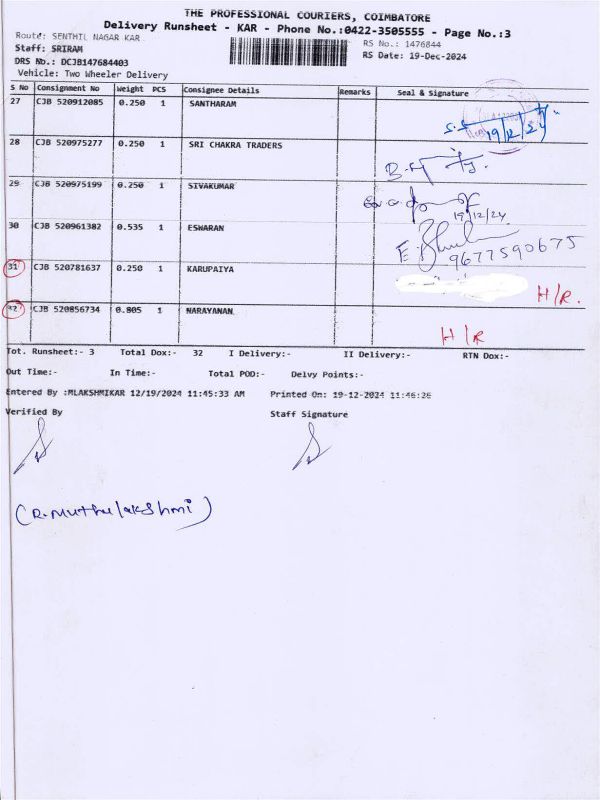 THE PROFESSIONAL COURIERS, COIMBATORE
Delivery Runsheet - KAR - Phone No.:0422-3505555 - Page No.:3
Route: SENTHIL NAGAR KAR
RS No.: 1476844
Staff: SRIRAM
RS Date: 19-Dec-2024
DRS No: DCJB147684403
Vehicle: Two Wheeler Delivery
S No Consignment No Weight PCS Consignee Details Remarks Seal & Signature
27 CJB 520912085 0.250 1 SANTHARAM
19/12/24
28 CJB 520975277 0.250 1 SRI CHAKRA TRADERS
29 CJB 520975199 0.250 1 SIVAKUMAR
19/12/24
30 CJB 520961382 0.535 1 ESWARAN
9677590675
31 CJB 520781637 0.250 1 KARUPAIYA
H/R.
CJB 520856734 0.805 1 NARAYANAN.
H/R
Tot. Runsheet:- 3 Total Dox:- 32 I Delivery:- II Delivery:- RTN Dox:-
Out Time:- In Time:- Total POD:- Delvy Points:-
Entered By :MLAKSHMIKAR 12/19/2024 11:45:33 AM Printed On: 19-12-2024 11:46:26
Verified By Staff Signature
(R.Muthulakshmi)